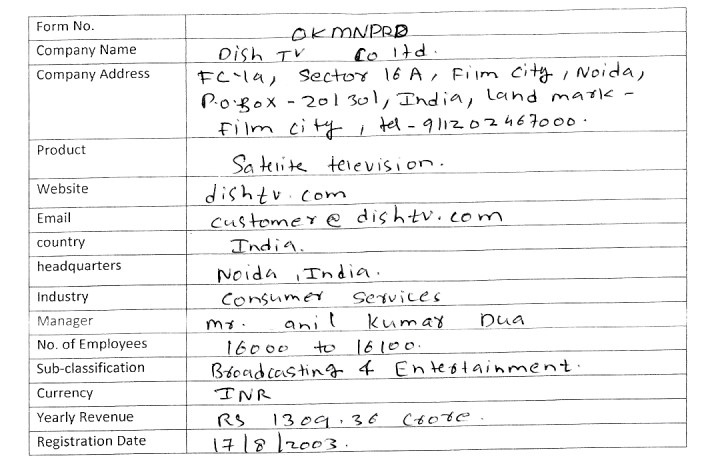 Form No. OKMNPRD
Company Name Dish TV Co ltd.
Company Address FC-1a, Sector 16A, Film city, Noida,
P.O.Box - 201301, India, Land mark -
Film city, tel - 911202467000.
Product Satelite television.
Website dishtv.com
Email customer@dishtv.com
country India.
headquarters Noida, India.
Industry Consumer Services
Manager mr. anil kumar Dua
No. of Employees 16000 to 16100.
Sub-classification Broadcasting & Entertainment.
Currency INR
Yearly Revenue RS 1309.36 Crore.
Registration Date 17/8/2003.